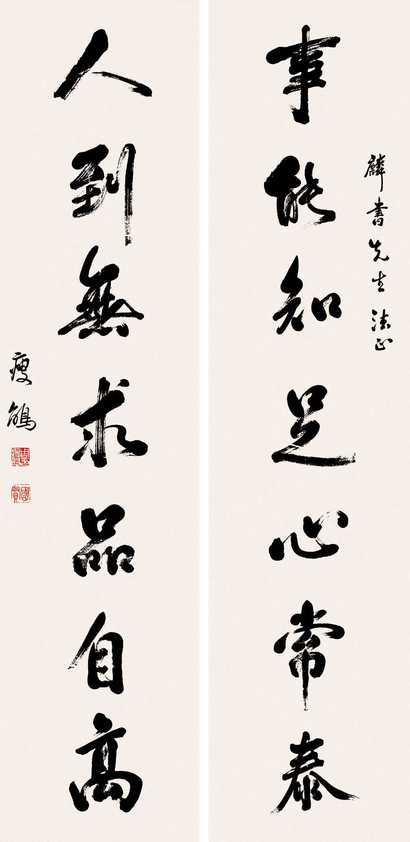 事能知足心常泰
麟書先生法正
人到無求品自高
瘦鵑